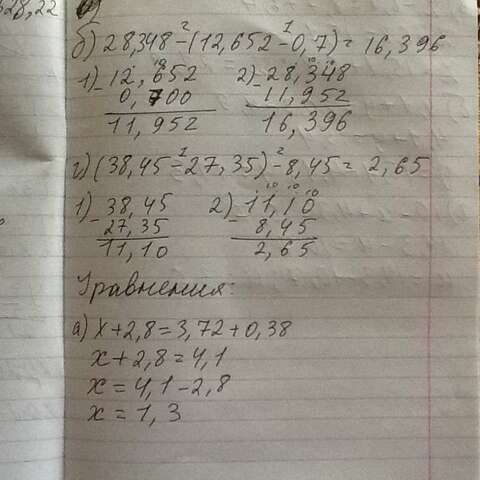 328,22
б) 28,348-(12,652-0,7)=16,396
1) -12,652 2) -28,348
0,700 11,952
11,952 16,396
г) (38,45-27,35)-8,45=2,65
1) -38,45 2) -11,10
27,35 8,45
11,10 2,65
Уравнения:
а) x+2,8=3,72+0,38
x+2,8=4,1
x=4,1-2,8
x=1,3